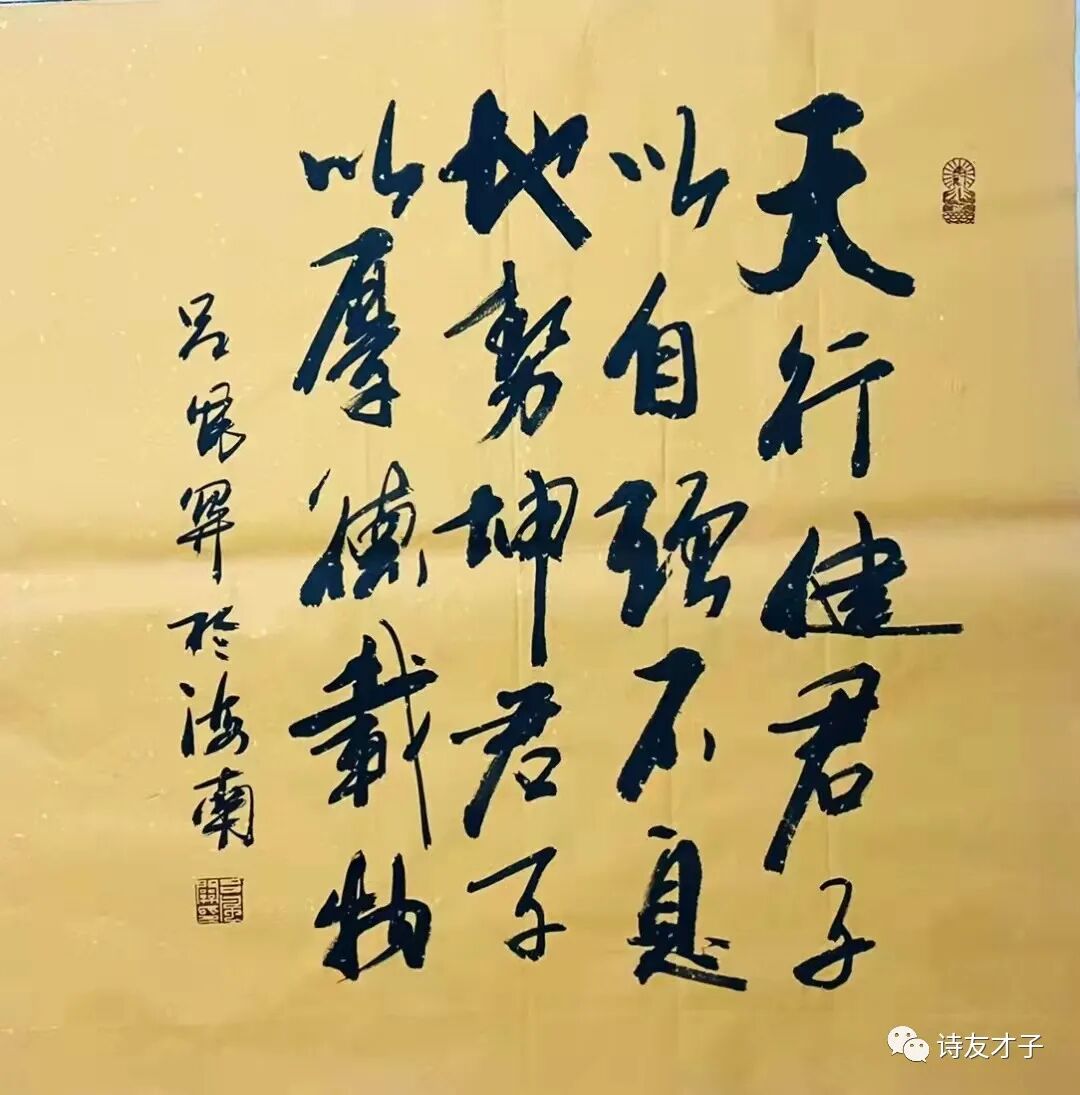 天行健君子
以自强不息
地勢坤君子
以厚德載物
吕 於海南
诗友才子